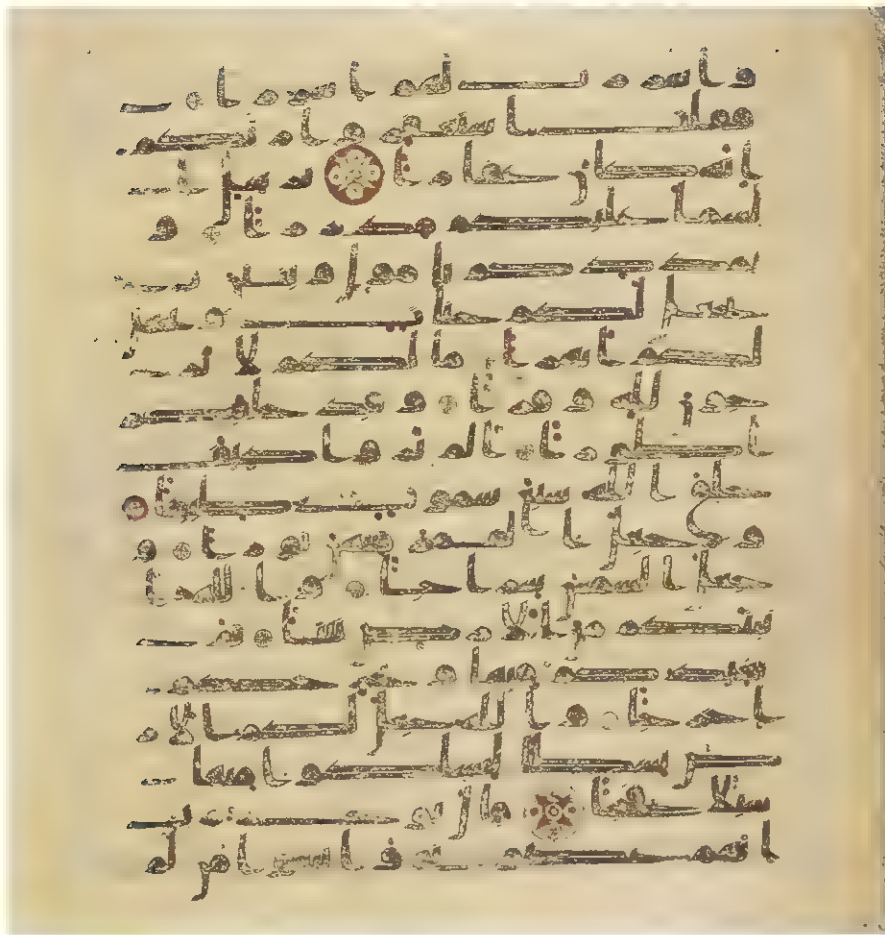 واسررت لهم اسرارا
فقلت استغفروا ربكم
انه كان غفارا يرسل ا
لسما عليكم مدرارا و
يمددكم باموال وبنين و
يجعل لكم جنت ويجعل
لكم انهرا ما لكم لا تر
جون لله وقارا وقد خلقكم
اطوارا الم تروا كيف
خلق الله سبع سموت طباقا
وجعل القمر فيهن نورا و
جعل الشمس سراجا والله ا
نبتكم من الارض نباتا ثم
يعيدكم فيها ويخرجكم
اخراجا والله جعل لكم الا
رض بساطا لتسلكوا منها
سبلا فجاجا قال نوح رب
انهم عصوني واتبعوا من لم